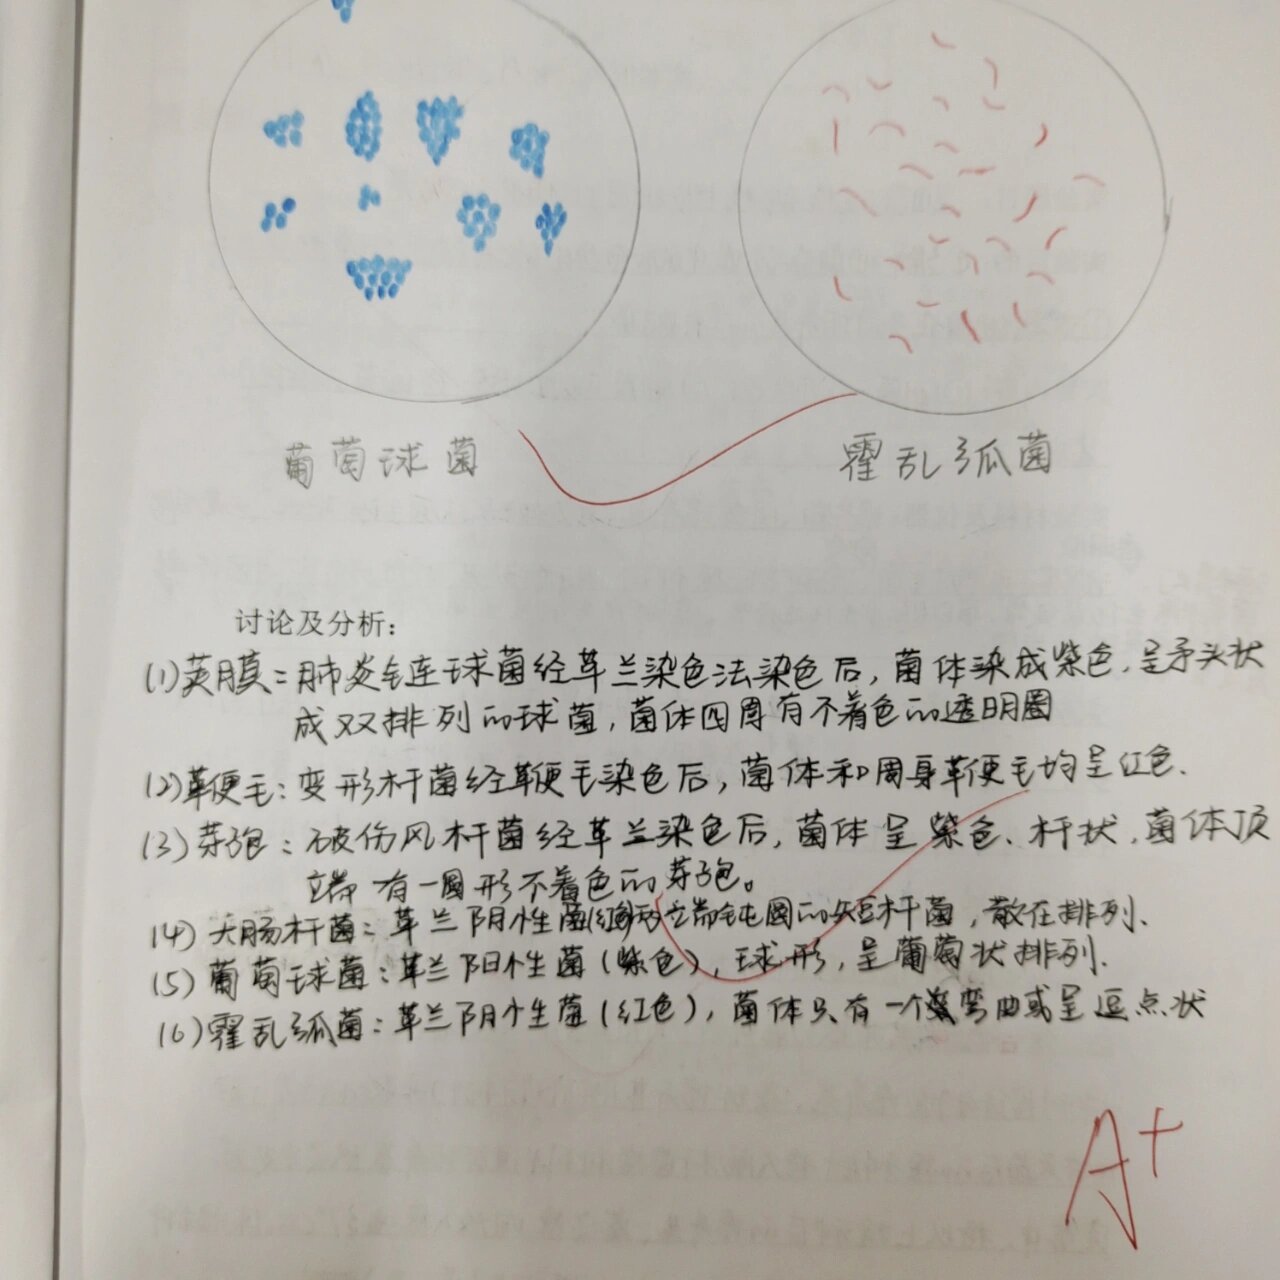 葡萄球菌
霍乱弧菌
讨论及分析:
(1)荚膜:肺炎链球菌经革兰染色法染色后,菌体染成紫色,呈矛头状
成双排列的球菌,菌体四周有不着色的透明圈
(2)鞭毛:变形杆菌经鞭毛染色后,菌体和周身鞭毛均呈红色.
(3)芽孢:破伤风杆菌经革兰染色后,菌体呈紫色、杆状,菌体顶
端有一圆形不着色的芽孢。
(4)大肠杆菌:革兰阴性菌(红色)两端钝圆的短杆菌,散在排列.
(5)葡萄球菌:革兰阳性菌(紫色),球形,呈葡萄状排列.
(6)霍乱弧菌:革兰阴性菌(红色),菌体只有一个弯曲或呈逗点状
A+